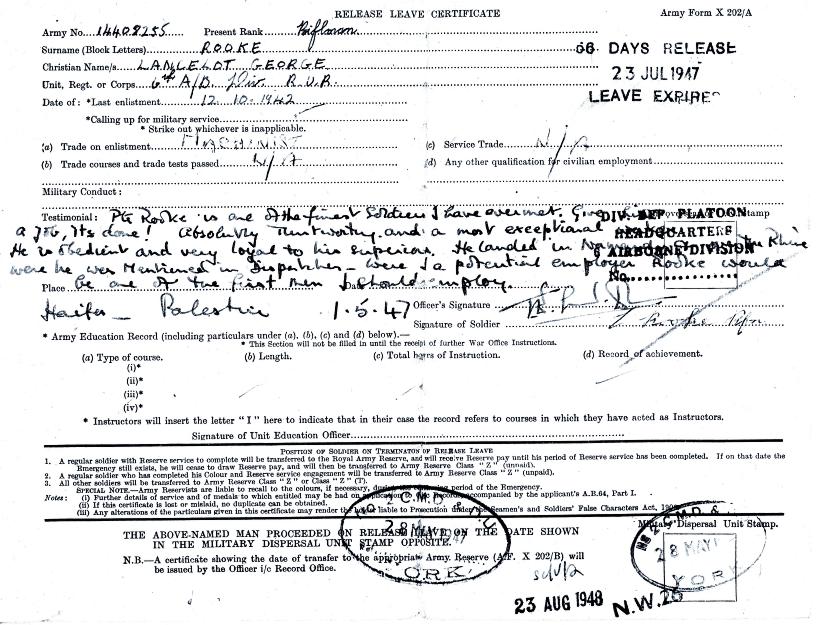 RELEASE LEAVE CERTIFICATE
Army Form X 202/A
Army No. 14408255 Present Rank Rifleman
Surname (Block Letters) ROOKE
Christian Name/s LANCELOT GEORGE
Unit, Regt. or Corps 6th A/B Div. R.U.R.
56 DAYS RELEASE
23 JUL 1947
LEAVE EXPIRES
Date of: *Last enlistment 12.10.1942
*Calling up for military service
* Strike out whichever is inapplicable.
(a) Trade on enlistment MACHINIST (c) Service Trade N/A
(b) Trade courses and trade tests passed N/A (d) Any other qualification for civilian employment
Military Conduct:
Testimonial: Pte Rooke is one of the finest Soldiers I have ever met. Give him
a job, its done! Absolutely Trustworthy, and a most exceptional
He is obedient and very loyal to his superiors. He landed in Rhine
were he was Mentioned in Dispatches - were I a potential employer Rooke would
be one of the first men I should employ.
DIV. DEF PLATOON
HEADQUARTERS
6 AIRBORNE DIVISION
No.
Place
Haifa - Palestine 1.5.47
Officer's Signature
Signature of Soldier Rooke Rfn
* Army Education Record (including particulars under (a), (b), (c) and (d) below).—
* This Section will not be filled in until the receipt of further War Office Instructions.
(a) Type of course. (b) Length. (c) Total hours of Instruction. (d) Record of achievement.
(i)*
(ii)*
(iii)*
(iv)*
* Instructors will insert the letter "I" here to indicate that in their case the record refers to courses in which they have acted as Instructors.
Signature of Unit Education Officer
POSITION OF SOLDIER ON TERMINATON OF RELEASE LEAVE
1. A regular soldier with Reserve service to complete will be transferred to the Royal Army Reserve, and will receive Reserve pay until his period of Reserve service has been completed. If on that date the
Emergency still exists, he will cease to draw Reserve pay, and will then be transferred to Army Reserve Class "Z" (unpaid).
2. A regular soldier who has completed his Colour and Reserve service engagement will be transferred to Army Reserve Class "Z" (unpaid).
3. All other soldiers will be transferred to Army Reserve Class "Z" or Class "Z" (T).
SPECIAL NOTE.—Army Reservists are liable to recall to the colours, if necessary, during the remaining period of the Emergency.
Notes: (i) Further details of service and of medals to which entitled may be had on application to the Record accompanied by the applicant's A.B.64, Part I.
(ii) If this certificate is lost or mislaid, no duplicate can be obtained.
(iii) Any alterations of the particulars given in this certificate may render the holder liable to Prosecution under the Seamen's and Soldiers' False Characters Act,
THE ABOVE-NAMED MAN PROCEEDED ON RELEASE LEAVE ON THE DATE SHOWN
IN THE MILITARY DISPERSAL UNIT STAMP OPPOSITE.
N.B.—A certificate showing the date of transfer to the appropriate Army Reserve (A.F. X 202/B) will
be issued by the Officer i/c Record Office.
28 MAY 1947
YORK
Military Dispersal Unit Stamp.
28 MAY
YORK
23 AUG 1948
N.W.26